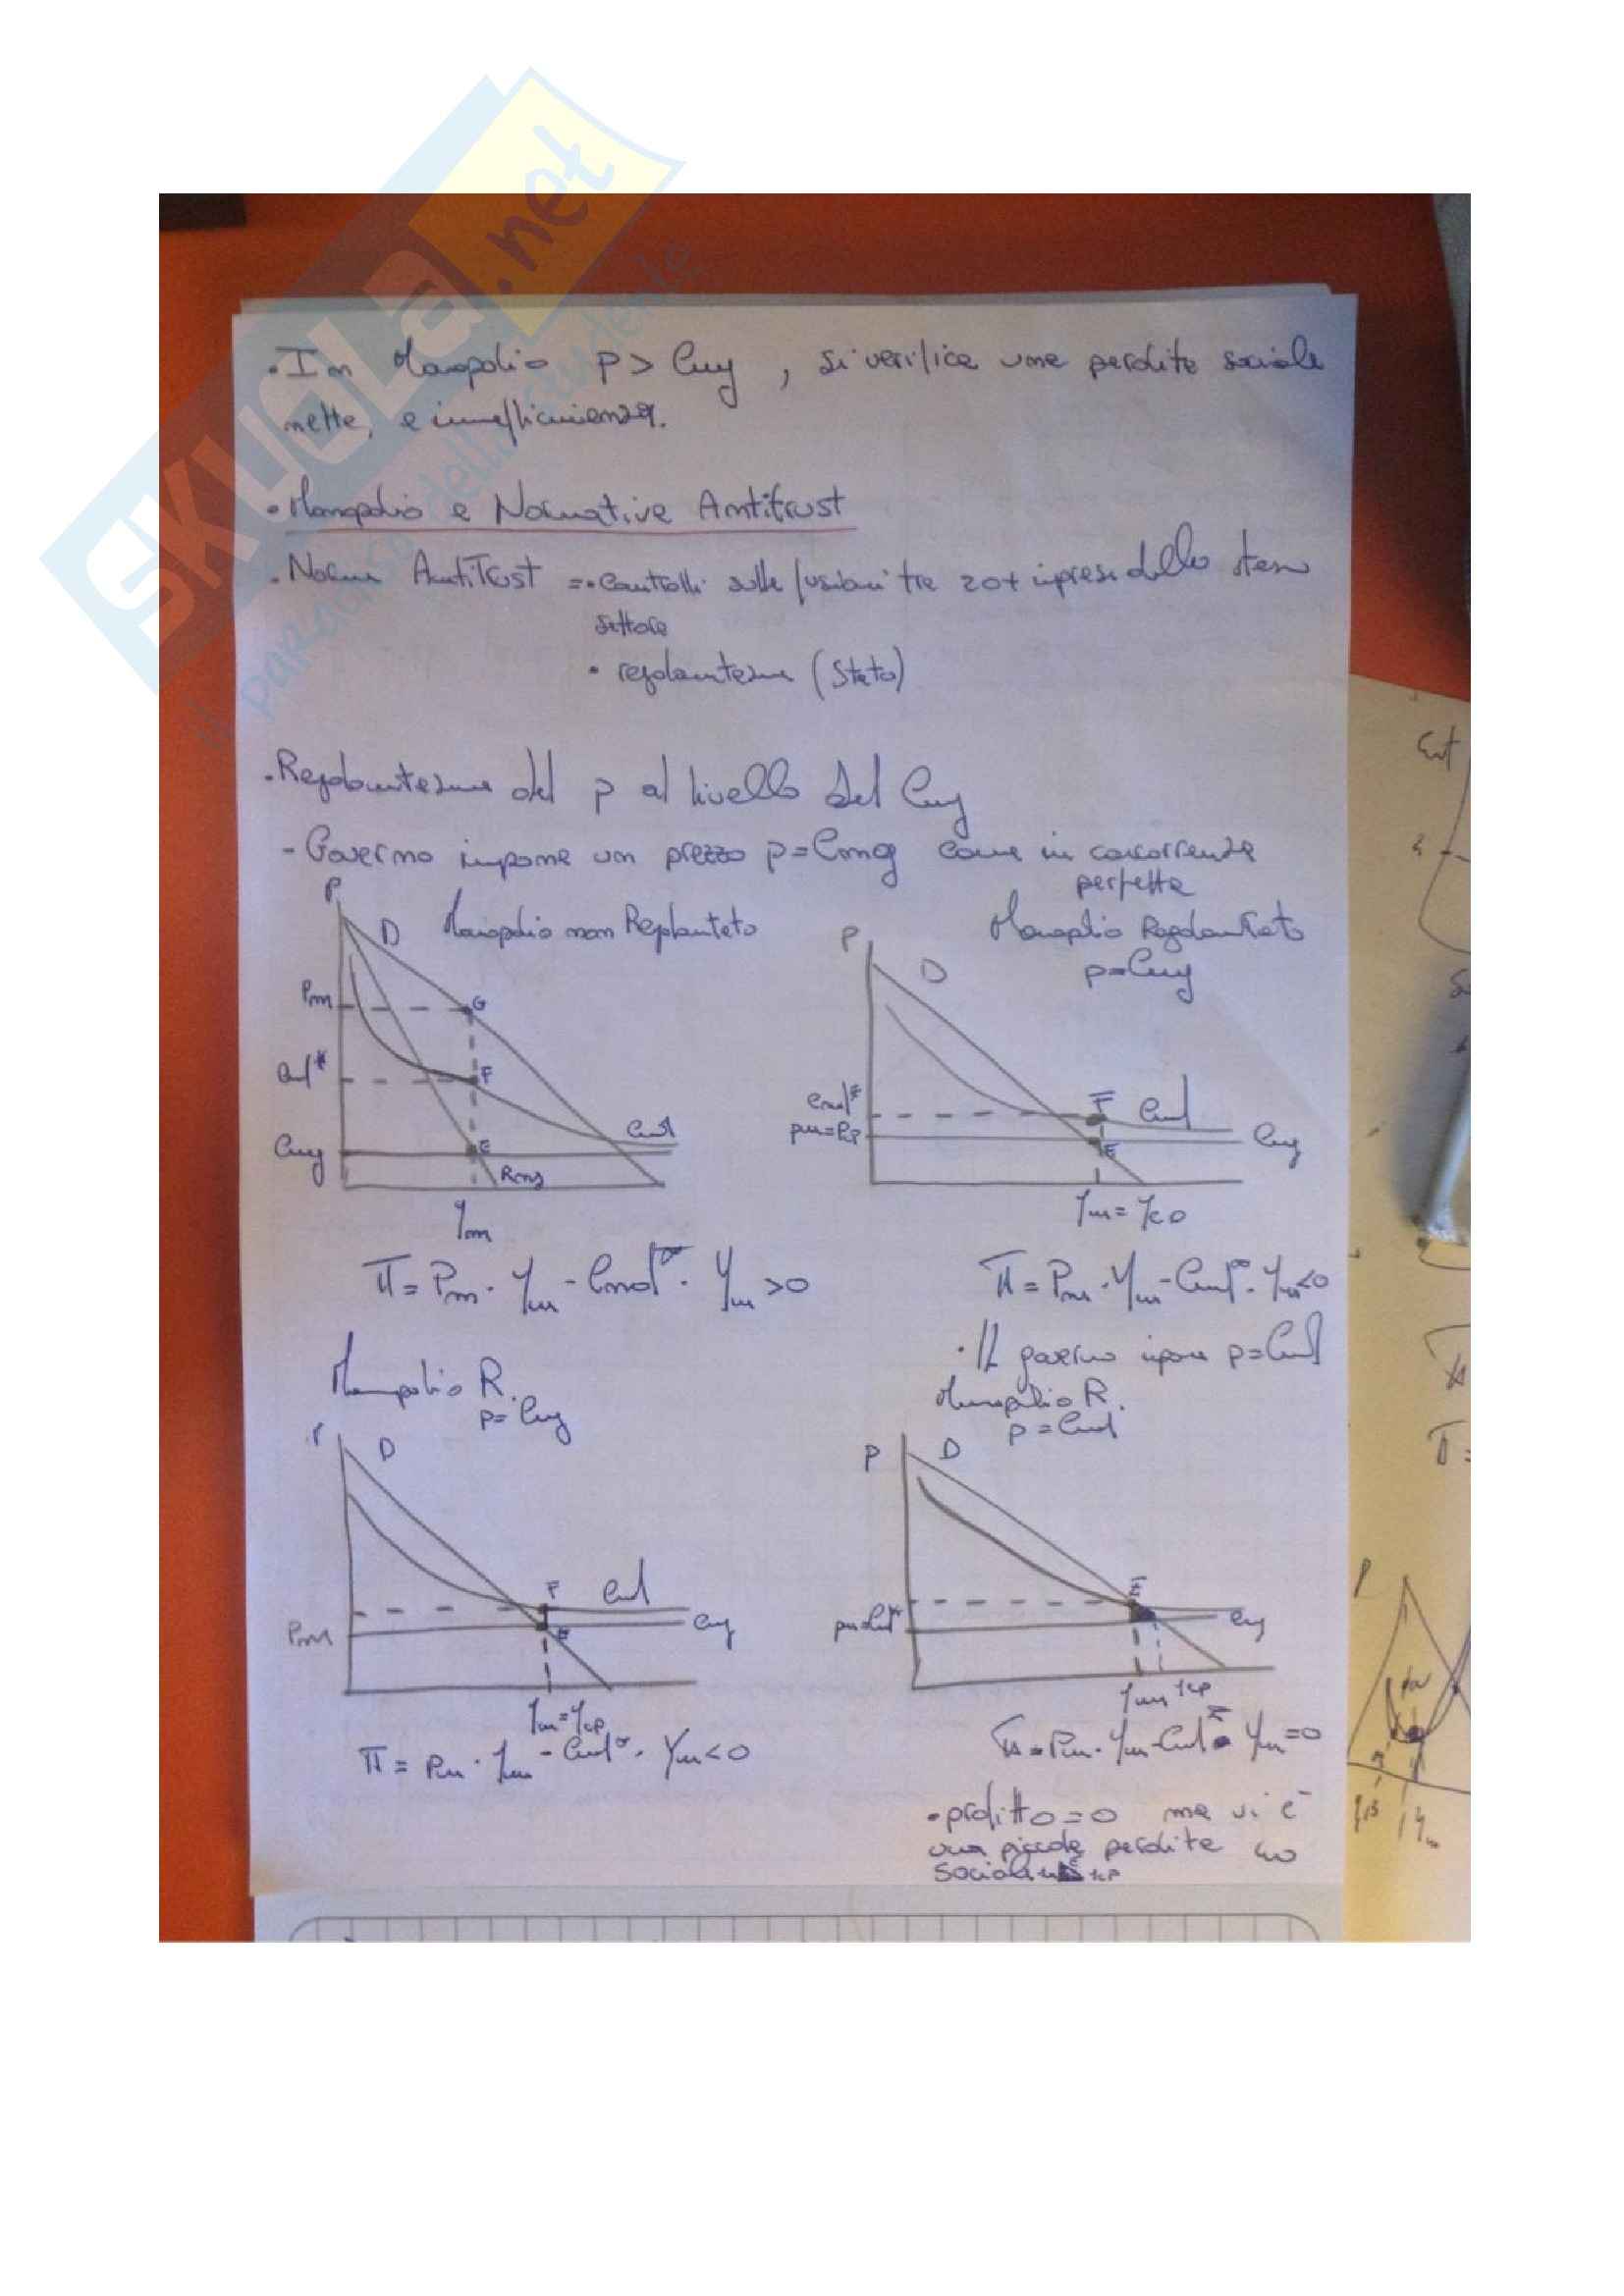 SKUOLA.net
il paradiso dello studente
• In Monopolio p > Cmg , si verifica una perdita sociale
netta, e inefficienza.
• Monopolio e Normative Antitrust
• Norme AntiTrust = • Controlli sulle fusioni tra 2 o + imprese dello stesso
settore
• regolamentazione (Stato)
• Regolamentazione del p al livello del Cmg
- Governo impone un prezzo p=Cmg come in concorrenza
perfetta
P D Monopolio non Regolamentato
Pm G
Cmd* F
Cmd
Cmg E
Rmg
Ym
Π = Pm · Ym - Cmd* · Ym > 0
Monopolio Regolamentato
p=Cmg
P D
Cmd* F Cmd
pm=Pcp E Cmg
Ym = Yco
Π = Pm · Ym - Cmd* · Ym < 0
Monopolio R.
p=Cmg
P D
F Cmd
Pm E Cmg
Ym=Ycp
Π = Pm · Ym - Cmd* · Ym < 0
• Il governo impone p=Cmd
Monopolio R.
p=Cmd
P D
E
pm=Cmd* Cmg
Ym Ycp
Π = Pm · Ym - Cmd* · Ym = 0
• profitto = 0 ma vi è
una piccola perdita
sociale